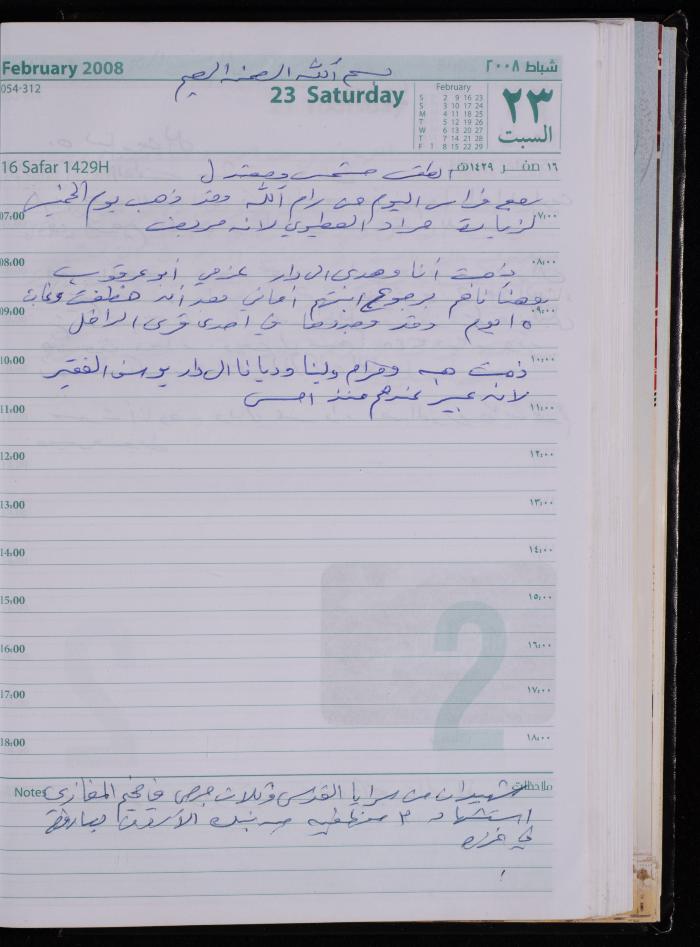 February 2008
شباط ٢٠٠٨
بسم الله الرحمن الرحيم
054-312
23 Saturday
February
S 2 9 16 23
S 3 10 17 24
M 4 11 18 25
T 5 12 19 26
W 6 13 20 27
T 7 14 21 28
F 1 8 15 22 29
٢٣
السبت
16 Safar 1429H
١٦ صفر ١٤٢٩هـ
الطقس مشمس ومعتدل
رجع فراس اليوم من رام الله وقد ذهب يوم الخميس
07:00
٧:٠٠
لزيارة مراد العطيوي لانه مريض
08:00
٠٨:٠٠
ذهبت أنا وهدى الى دار عزمي أبو عرقوب
وهنأناهم برجوع ابنتهم أماني بعد أن خطفت وغابت
09:00
٠٩:٠٠
١٥ يوم وقد وجدوها في احدى قرى الداخل
10:00
١٠:٠٠
ذهبت هبه ومرام ولينا وديانا الى دار يوسف الفقير
لانه عندهم منذ امس
11:00
١١:٠٠
12:00
١٢:٠٠
13:00
١٣:٠٠
14:00
١٤:٠٠
15:00
١٥:٠٠
16:00
١٦:٠٠
17:00
١٧:٠٠
18:00
١٨:٠٠
2
Notes
ملاحظات
شهيدان من سرايا القدس وثلاث جرحى في مخيم المغازي
استشهاد ٣ من
في غزه